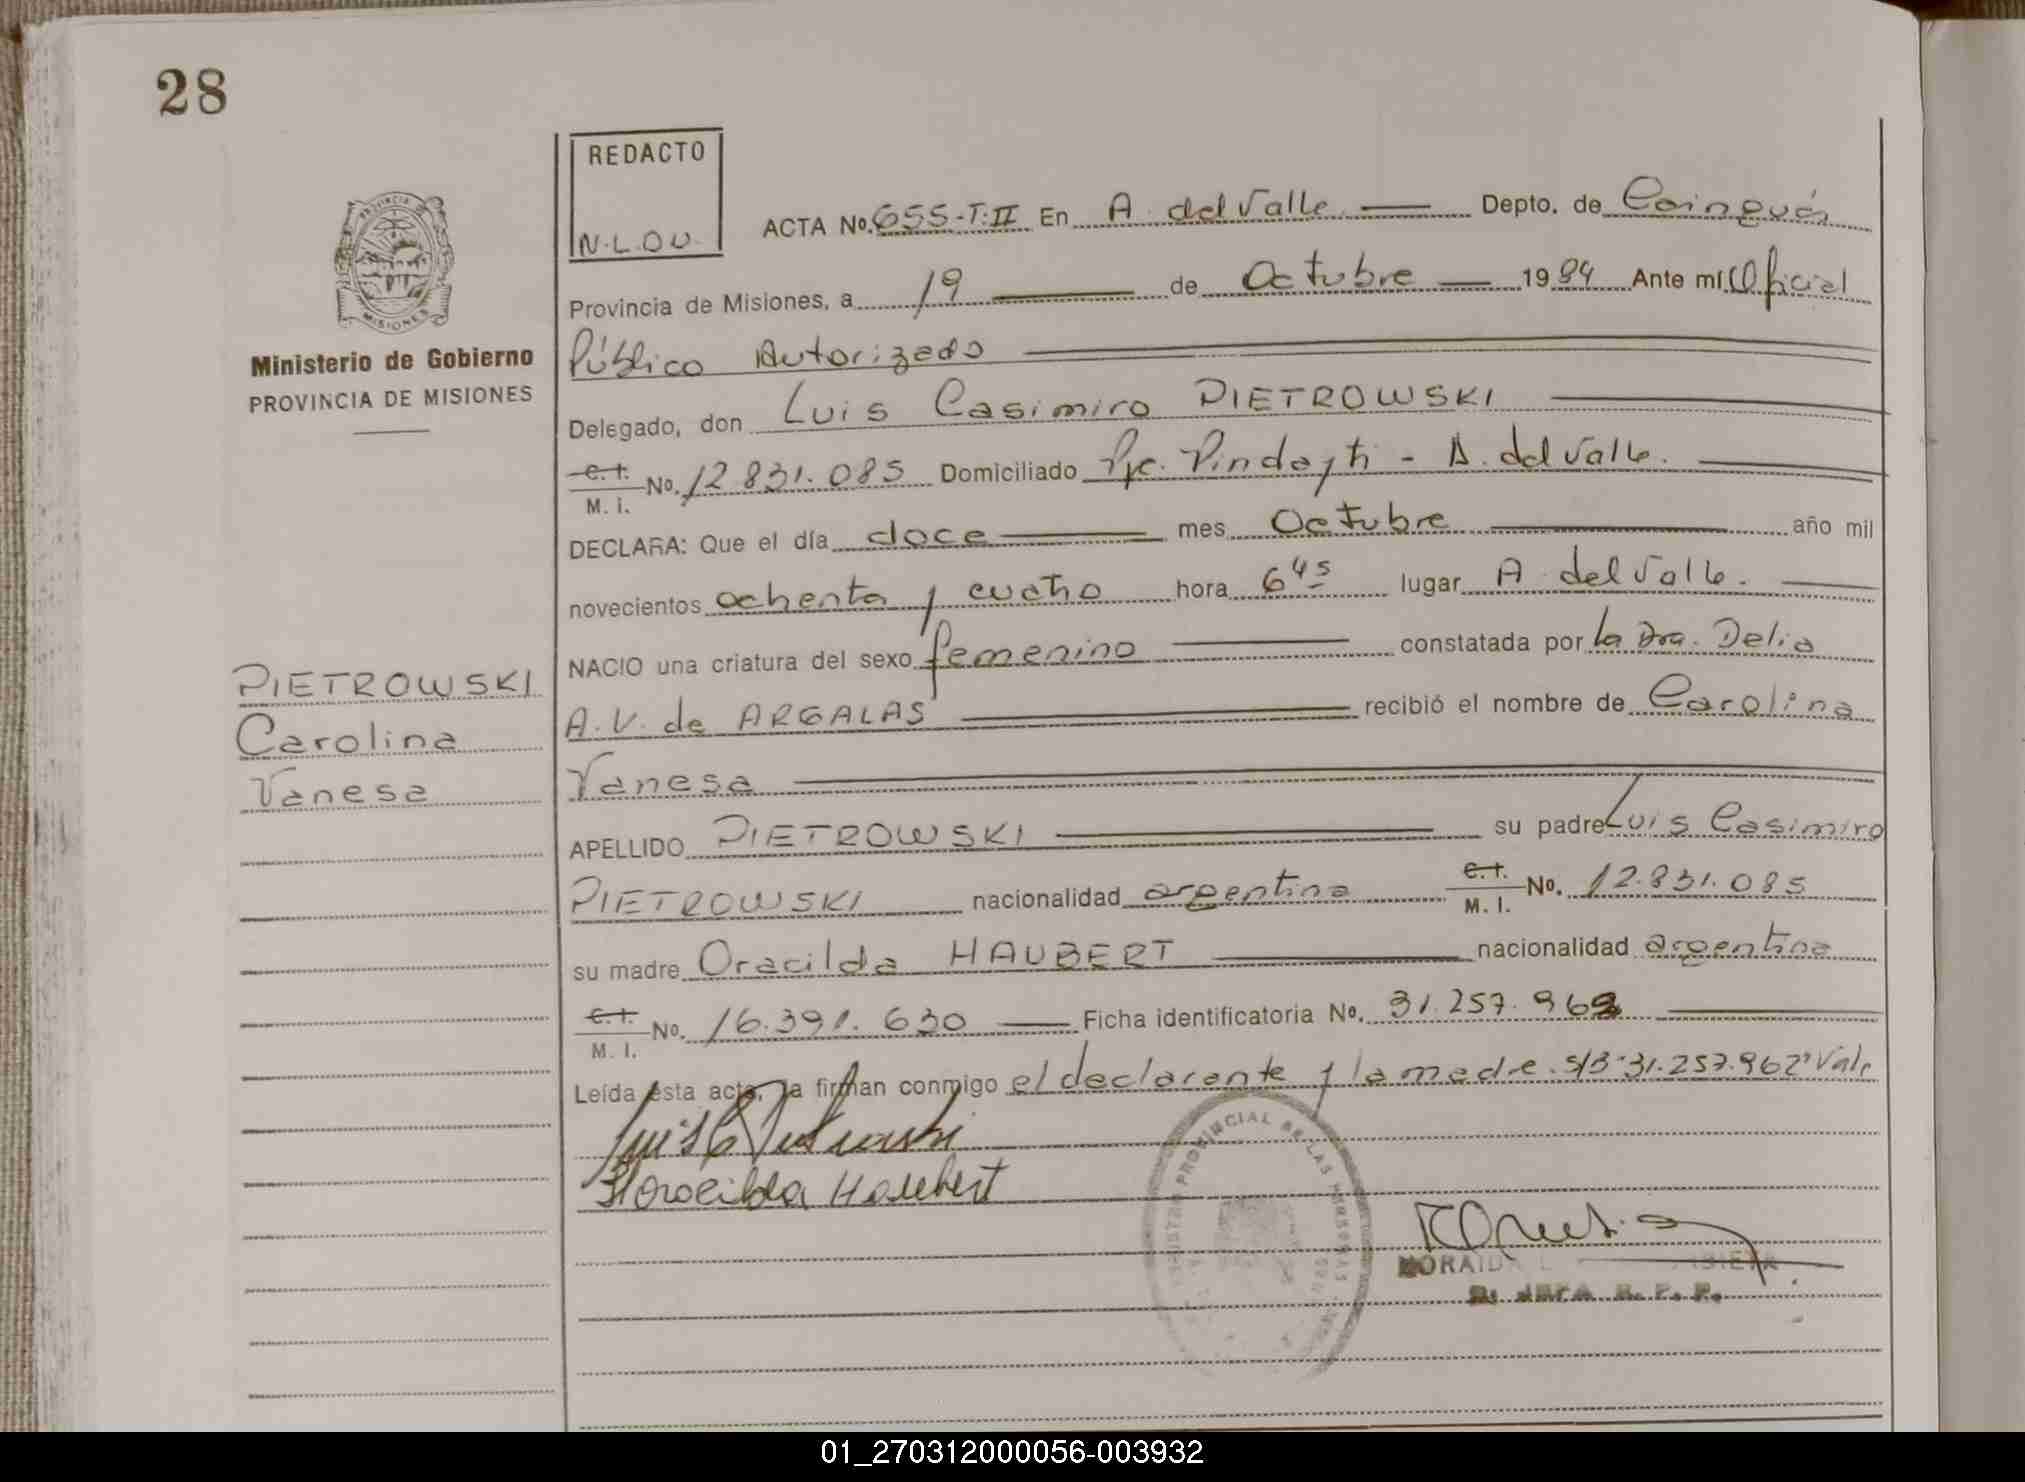 28
REDACTO
N.L.D.V.
ACTA No. 655-T:II En A. del Valle Depto. de Cainguás
Provincia de Misiones, a 19 de Octubre 1984 Ante mí Oficial
Ministerio de Gobierno
PROVINCIA DE MISIONES
Público Autorizado
Delegado, don Luis Casimiro PIETROWSKI
C. I.
M. I. No. 12.831.085 Domiciliado Pje. Pindayti - A. del Valle.
DECLARA: Que el día doce mes Octubre año mil
novecientos ochenta y cuatro hora 6 45 lugar A. del Valle.
NACIO una criatura del sexo femenino constatada por la Dra. Delia
A.V. de ARGALAS recibió el nombre de Carolina
Vanesa
PIETROWSKI
Carolina
Vanesa
APELLIDO PIETROWSKI su padre Luis Casimiro
PIETROWSKI nacionalidad argentina C. I.
M. I. No. 12.831.085
su madre Oracilda HAUBERT nacionalidad argentina
C. I.
M. I. No. 16.391.630 Ficha identificatoria No. 31.257.962
Leída esta acta, la firman conmigo el declarante y la madre. S/B "31.257.962" Vale
Horocilda Haubert
PROVINCIAL DE LAS PERSONAS
01_270312000056-003932